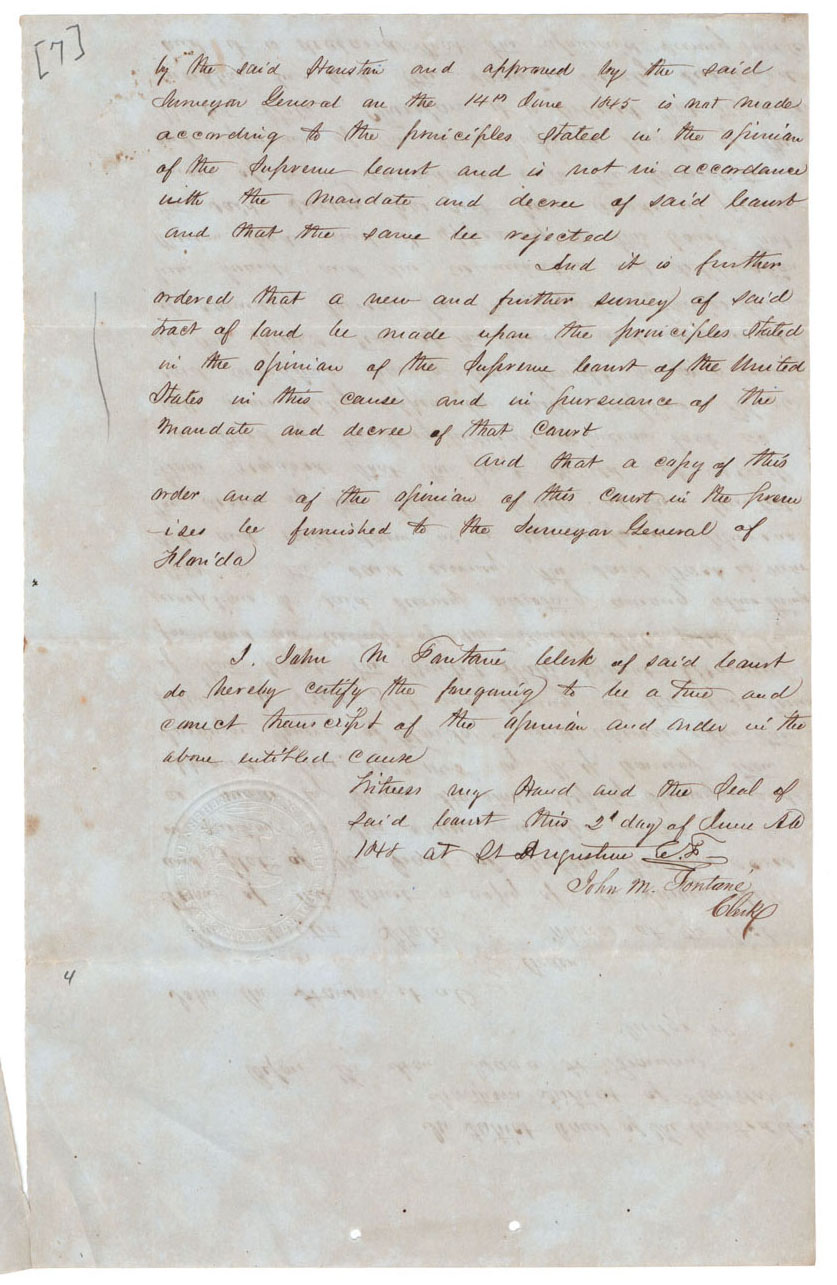 [7]
by the said Houston and approved by the said
Surveyor General on the 14th June 1845 is not made
according to the principles stated in the opinion
of the Supreme Court and is not in accordance
with the mandate and decree of said Court
and that the same be rejected
And it is further
ordered that a new and further survey of said
tract of land be made upon the principles stated
in the opinion of the Supreme Court of the United
States in this cause and in pursuance of the
Mandate and decree of that Court
And that a copy of this
order and of the opinion of this court in the prem
-ises be furnished to the Surveyor General of
Florida
I. John M Fontané Clerk of said Court
do hereby certify the foregoing to be a True and
correct transcript of the opinion and order in the
above entitled cause
Witness my Hand and the Seal of
said Court this 2d day of June AD
1848 at St Augustine E.F.
John M. Fontané
Clerk
4